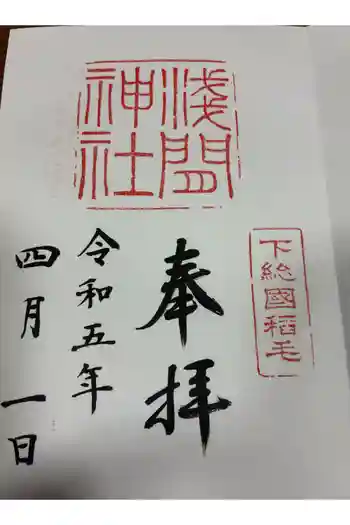 下総國稲毛
浅間
神社
奉拝
令和五年
四月一日